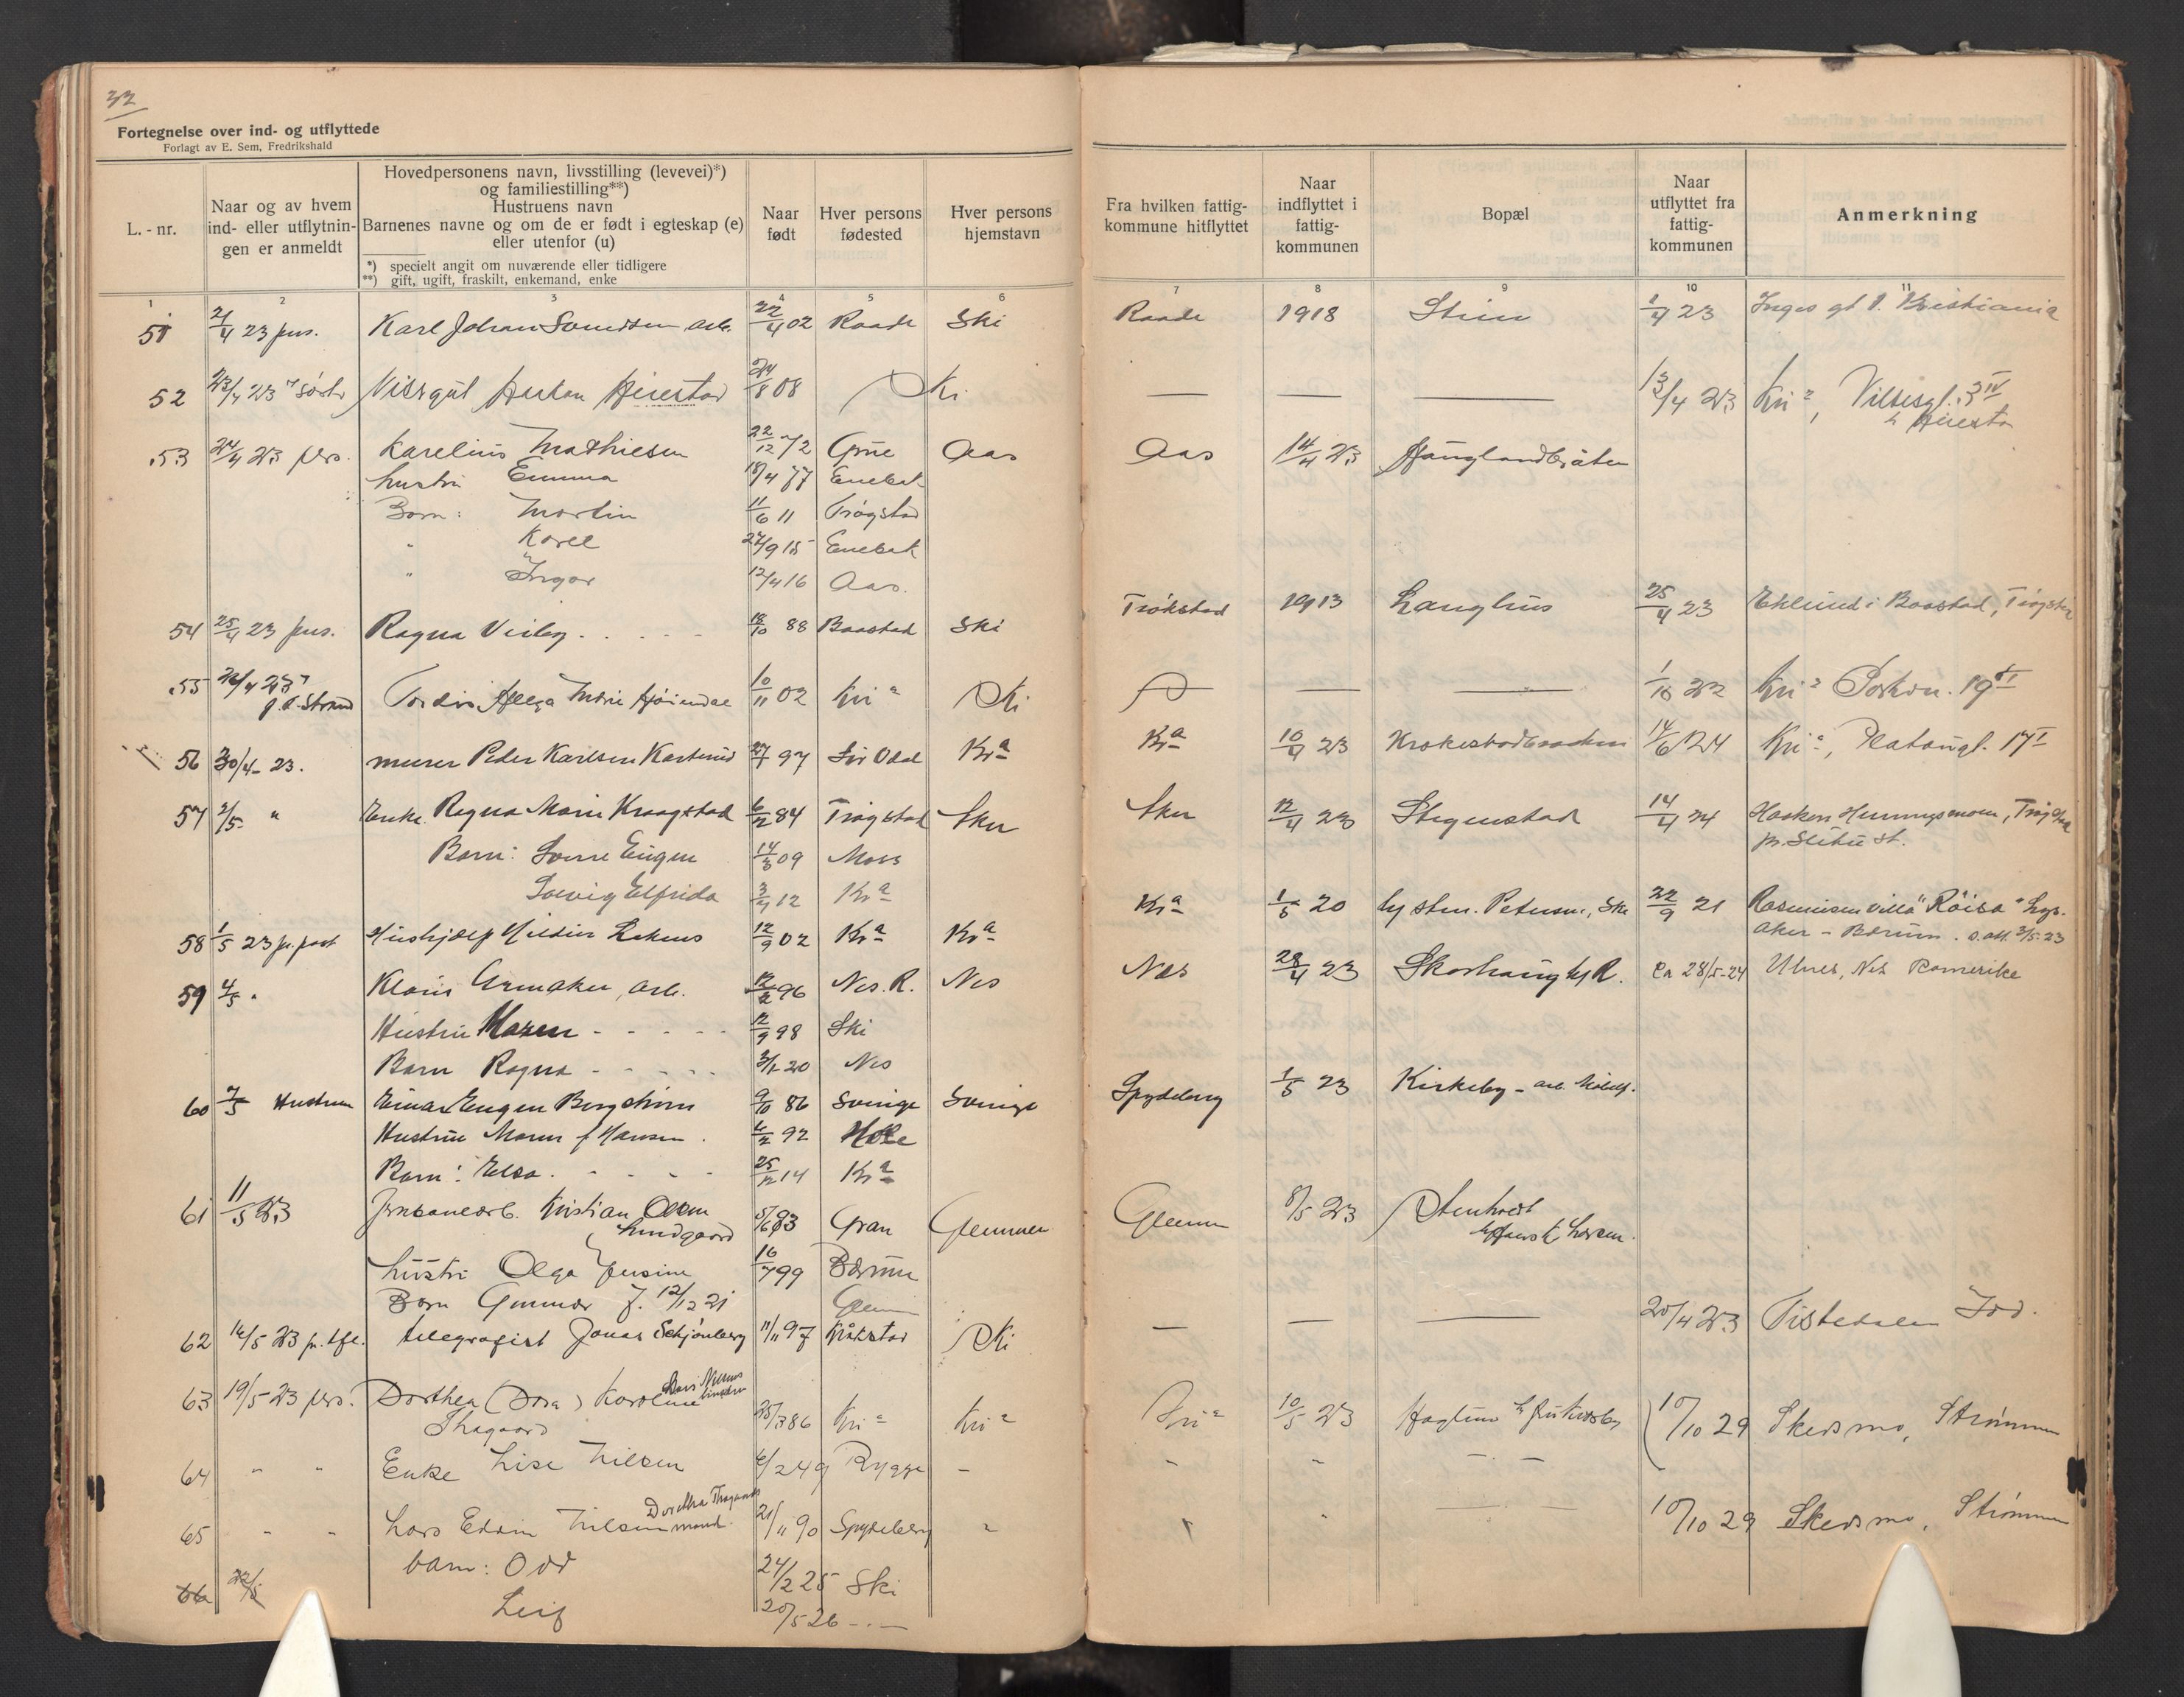 32
Fortegnelse over ind- og utflyttede
Forlagt av E. Sem, Fredrikshald
L. - nr.
Naar og av hvem ind- eller utflytnin- gen er anmeldt
Hovedpersonens navn, livsstilling (levevei)*)
og familiestilling**)
Hustruens navn
Barnenes navne og om de er født i egteskap (e)
eller utenfor (u)
*) specielt angit om nuværende eller tidligere
**) gift, ugift, fraskilt, enkemand, enke
Naar født
Hver persons fødested
Hver persons hjemstavn
Fra hvilken fattig- kommune hitflyttet
Naar indflyttet i fattig- kommunen
Bopæl
Naar utflyttet fra fattig- kommunen
Anmerkning
1 2 3 4 5 6 7 8 9 10 11
51 2/4 23 pers. Karl Johan Svendsen arb. 22/4 02 Raade Ski Raade 1918 Stien 1/4 23 Inges gt 1. Kristiania
52 23/4 23 Haakon Heiestad 24/8 08 Ski — — — 13/4 23 Kri a,
53 24/4 23 pers. Karelius Mathiesen 22/12 72 Grue Aas Aas 14/4 23 Hauglandbråten
hustru Emma 18/4 77 Enebak
Barn: Martin 11/6 11 Trøgstad
" Karel 27/9 15 Enebak
" Ingar 12/4 16 Aas.
54 25/4 23 pers. Ragna Visleg 18/10 88 Baastad Ski Trøkstad 1913 Langhus 25/4 23 Eklund i Baastad, Trøgstad
55 26/4 23 Strand Tordis Helga Marie Høiendal 10/11 02 Kri a Ski — — — 1/10 22 Kri a 19 II
56 30/4 - 23. murer Peder Karlsen Karterud 27/7 97 Sør Odal Kr a Kr a 10/4 23 Krokestadbraaten 14/6 24 Kri a, Platougt. 17 I
57 2/5 " Enke Ragna Marie Kraagstad 6/12 84 Trøgstad Sku Sku 12/4 23 Stegenstad 14/4 24 Haaken Hemnesmoen, Trøgstad
pr. Slitu st.
Barn: Sverre Eugen 14/3 09 Moss
Solveig Elfrida 3/4 12 Kr a
58 1/5 23 pr. post Hushjælp 12/9 02 Kr a Kr a Kr a 1/5 20 Petersen, Ski 22/9 21 Rasmussen villa "Röisa" Lys-
aker - Bærum. 3/5 23
59 4/5 " Klaus Ormaker, arb. 12/2 96 Nes. R. Nes Nes 28/4 23 Skorhaug 28/5-24 Ulnes, Nes Romerike
Hustru Maren 12/9 98 Ski
Barn Ragna 3/1 20 Nes
60 7/5 Hustruen Einar Eugen Bergstrøm 9/10 86 Svinge Svinge Spydeberg 1/5 23 Kirkeby - arb.
Hustru Maren f Hansen. 6/2 92 Hole
Barn: Elsa 25/12 14 Kr a
61 11/5 23 Jernbanearb. Kristian Olsen 5/6 93 Gran Glemmen Glemm 8/5 23 Stenhvedt
Lundgaard Larsen.
hustru Olga Jensine 16/7 99 Bærum
Barn Gunnar f. 12/12 21 Glem
62 14/5 23 pr. tlf. telegrafist Jonas Schjønberg 11/11 97 Kråkstad Ski — — — 20/4 23 Tistedalen Idd.
63 19/5 - 23 pers. Dorthea (Dora) Karoline Lars Nilsens hustru
Thagaard 25/3 86 Kri a Kri a Kri a 10/5 23 Haglund 10/10 29 Skedsmo, Strømmen
64 " " Enke Lise Nilsen 6/2 49 Rygge
65 " " Lars Edvin Nilsen Dorthea Thagaards mand. 21/11 90 Spydeberg " 10/10 29 Skedsmo, Strømmen
barn: Odd 24/2 25 Ski
66 22/5
Leif 20/5 26 - " -